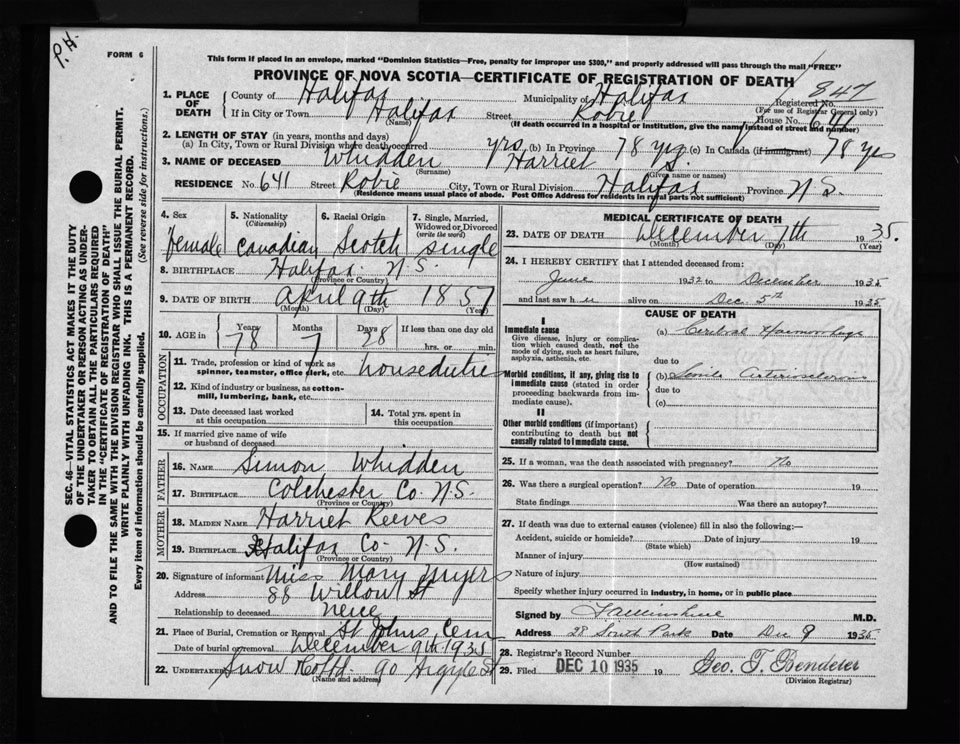 P.H.
FORM 6
This form if placed in an envelope, marked "Dominion Statistics—Free, penalty for improper use $300," and properly addressed will pass through the mail "FREE"
PROVINCE OF NOVA SCOTIA—CERTIFICATE OF REGISTRATION OF DEATH
847
1. PLACE OF DEATH
County of Halifax Municipality of Halifax Registered No.
(For use of Registrar General only)
If in City or Town Halifax Street Robie House No. 641
(Name) (If death occurred in a hospital or institution, give the name instead of street and number)
2. LENGTH OF STAY (in years, months and days)
(a) In City, Town or Rural Division where death occurred yrs (b) In Province 78 yrs (c) In Canada (if immigrant) 78 yrs
3. NAME OF DECEASED Whidden Harriet S.
(Surname) (Given name or names)
RESIDENCE No. 641 Street Robie City, Town or Rural Division Halifax Province N.S.
(Residence means usual place of abode. Post Office Address for residents in rural parts not sufficient)
4. Sex 5. Nationality (Citizenship) 6. Racial Origin 7. Single, Married, Widowed or Divorced (write the word)
female Canadian Scotch single
8. BIRTHPLACE Halifax N.S.
(Province or Country)
9. DATE OF BIRTH April 9th 1857
(Month) (Day) (Year)
10. AGE in Years Months Days If less than one day old
78 7 28 hrs. or min.
OCCUPATION
11. Trade, profession or kind of work as spinner, teamster, office clerk, etc. houseduties
12. Kind of industry or business, as cotton-mill, lumbering, bank, etc.
13. Date deceased last worked at this occupation
14. Total yrs. spent in this occupation
15. If married give name of wife or husband of deceased
FATHER
16. NAME Simon Whidden
17. BIRTHPLACE Colchester Co. N.S.
(Province or Country)
MOTHER
18. MAIDEN NAME Harriet Reeves
19. BIRTHPLACE Halifax Co. N.S.
(Province or Country)
20. Signature of informant Miss Mary Myers
Address 88 Willow St
Relationship to deceased neice
21. Place of Burial, Cremation or Removal St Johns Cem
Date of burial or removal December 9th 1935
22. UNDERTAKER Snow Co Ltd 90 Argyle St
(Name and address)
MEDICAL CERTIFICATE OF DEATH
23. DATE OF DEATH December 7th 1935.
(Month) (Day) (Year)
24. I HEREBY CERTIFY that I attended deceased from:
June 1932 to December 1935
and last saw h alive on Dec. 5th 1935
CAUSE OF DEATH
I
Immediate cause
Give disease, injury or complication which caused death, not the mode of dying, such as heart failure, asphyxia, asthenia, etc.
(a) Cerebral Haemorrhage
due to
Morbid conditions, if any, giving rise to immediate cause (stated in order proceeding backwards from immediate cause).
(b) Senile Arteriosclerosis
due to
(c)
II
Other morbid conditions (if important) contributing to death but not causally related to immediate cause.
25. If a woman, was the death associated with pregnancy? No
26. Was there a surgical operation? No Date of operation 19
State findings Was there an autopsy?
27. If death was due to external causes (violence) fill in also the following:—
Accident, suicide or homicide? Date of injury 19
(State which)
Manner of injury
(How sustained)
Nature of injury
Specify whether injury occurred in industry, in home, or in public place
Signed by M.D.
Address 28 South Park Date Dec 9 1935
28. Registrar's Record Number
29. Filed DEC 10 1935 19
(Division Registrar)
SEC. 46—VITAL STATISTICS ACT MAKES IT THE DUTY
OF THE UNDERTAKER OR PERSON ACTING AS UNDER-
TAKER TO OBTAIN ALL THE PARTICULARS REQUIRED
IN THE "CERTIFICATE OF REGISTRATION OF DEATH"
AND TO FILE THE SAME WITH THE DIVISION REGISTRAR WHO SHALL ISSUE THE BURIAL PERMIT.
WRITE PLAINLY WITH UNFADING INK. THIS IS A PERMANENT RECORD.
Every item of information should be carefully supplied. (See reverse side for instructions.)